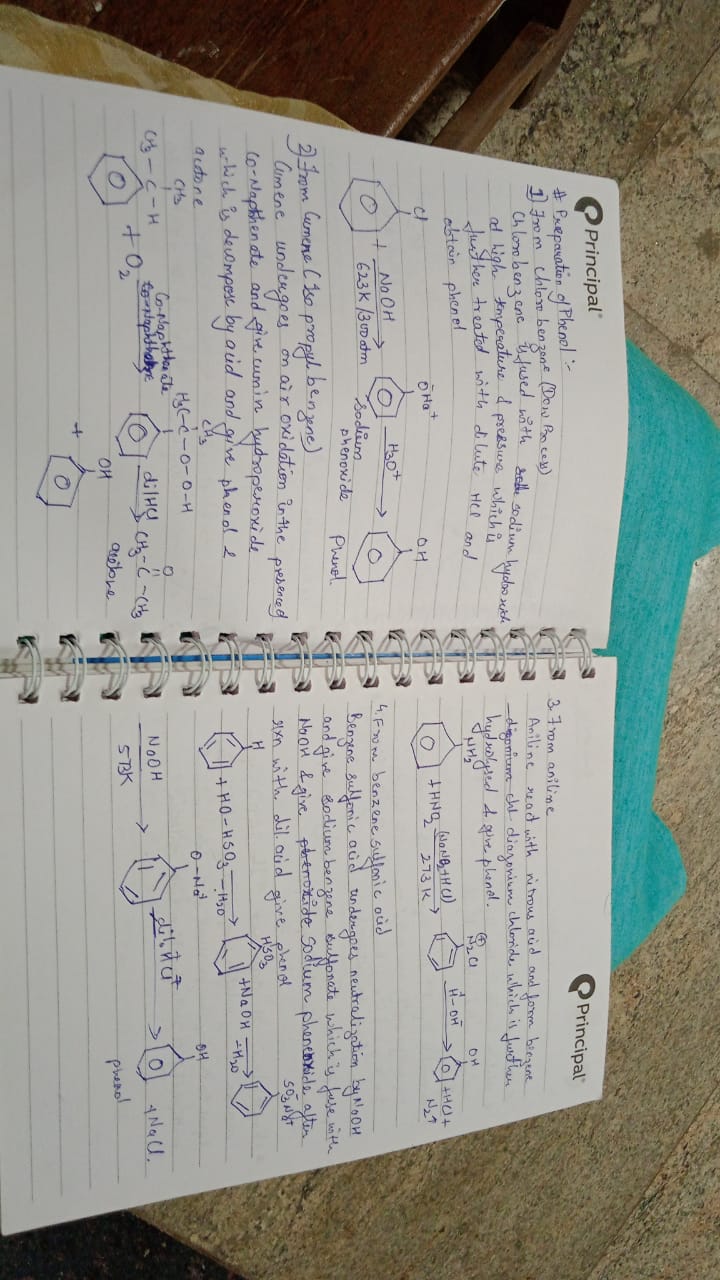 Principal
# Preparation of Phenol :-
1) From chlorobenzene (Dow Process)
Chlorobenzene is fused with sodium hydroxide
at high temperature & pressure which is
further treated with dilute HCl and
obtain phenol
Cl
ŌNa⁺
OH
+ NaOH
623K/300atm
H₃O⁺
Sodium
phenoxide
Phenol.
2) From Cumene (Isopropylbenzene)
Cumene undergoes on air oxidation in the presence of
Co-Napthenate and give cumin hydroperoxide
which is decompose by acid and give phenol &
acetone
CH₃
CH₃-C-H
+ O₂
Co-Naphthenate
CH₃
H₃C-C-O-O-H
dil HCl
O
CH₃-C-CH₃
acetone
+
OH
Principal
3. From aniline
Aniline react with nitrous acid and form benzene
diazonium chloride which is further
hydrolysed & give phenol.
NH₂
+HNO₂
(NaNO₂+HCl)
273K
N₂Cl
H-OH
OH
+HCl+
N₂↑
4. From benzene sulfonic acid
Benzene sulfonic acid undergoes neutralization by NaOH
and give sodium benzene sulfonate which is fuse with
NaOH & give sodium phenoxide after
rxn with dil. acid give phenol
H
+ HO-HSO₃
-H₂O
HSO₃
+NaOH
-H₂O
SO₃Na⁺
NaOH
573K
O-Na⁺
dil. HCl
OH
+NaCl.
phenol